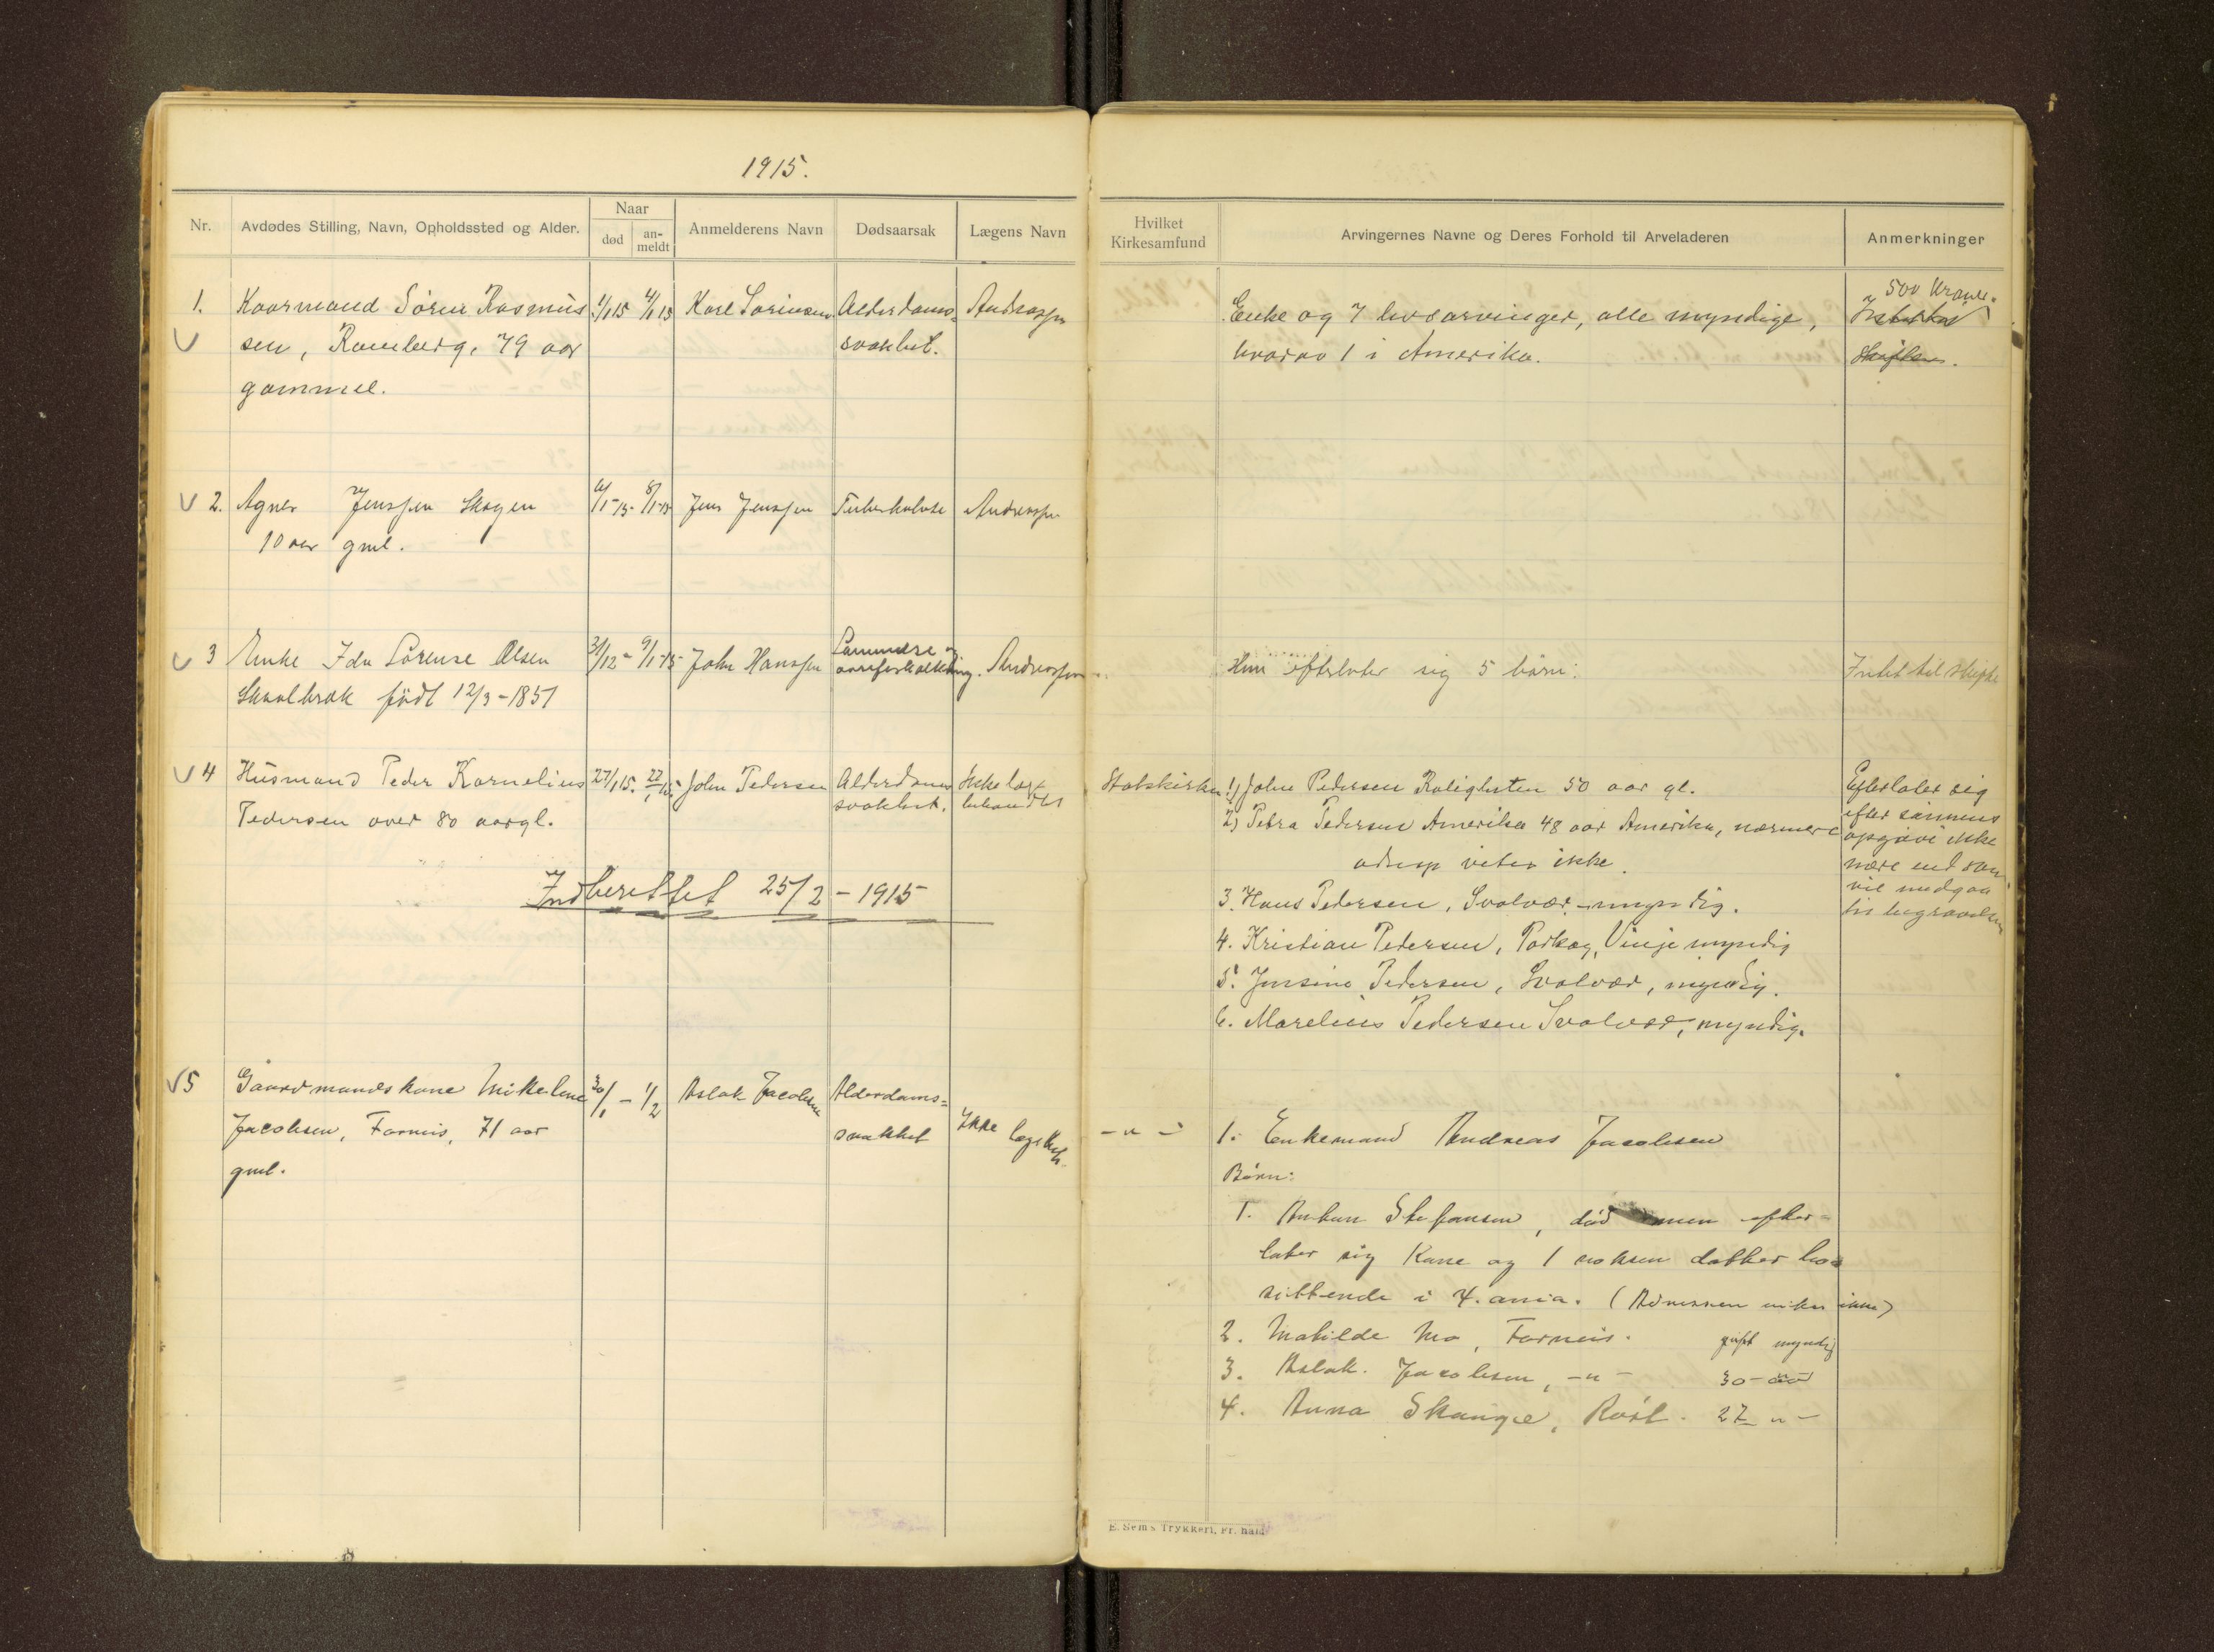 1915.
Nr. Avdødes Stilling, Navn, Opholdssted og Alder. Naar død an-meldt Anmelderens Navn Dødsaarsak Lægens Navn
Hvilket Kirkesamfund Arvingernes Navne og Deres Forhold til Arveladeren Anmerkninger
1. Kaarmand Sören Rasmus 1/1 15 4/1 15 Karl Sørensen Alderdoms= Andressen
sen, Ramberg, 79 aar svakhet.
gammel.
Enke og 7 livsarvinger, alle myndige,
hvorav 1 i Amerika.
500 Kroner.
Intet til
skifte.
2. Agnes Jenssen Skogen 6/1-15 8/1-15 Jens Jenssen Tuberkulose Andressen
10 aar gml.
3 Enke Ida Lorense Olsen 31/12 - 9/1-15 John Hanssen Lammelse og aareforkalkning. Andressen
Skaalbrek födt 12/3-1851
Hun efterlater sig 5 børn:
Intet til skifte
4 Husmand Peder Kornelius 27/1 15. John Pedersen Alderdoms Ikke læge
Pedersen over 80 aar gl. svakhet. behandlet
Statskirken
1) John Pedersen Roligheten 50 aar gl.
2) Petra Pedersen Amerika 48 aar Amerika, nærmere
adresse vites ikke.
3. Hans Pedersen, Svolvær - myndig.
4. Kristian Pedersen, Vinje myndig
5. Jensine Pedersen, Svolvær, myndig.
6. Marelius Pedersen Svolvær, myndig.
Efterlater sig
efter sønnens
opgave ikke
mere end som
vil medgaa
til begravelsen
Indberettet 25/2 - 1915
5 Gaardmandskone Mikeline 30/1 - 1/2 Aslak Jacobsen Alderdoms=
Jacobsen, Farneis, 71 aar svakhet Ikke læge beh.
gml.
- " -
1. Enkemand Andreas Jacobsen
Børn:
1. Anton Stefansen, död men efter=
later sig Kone og 1 voksen datter bo=
sittende i (Adressen vites ikke)
2. Matilde Mo, Farneis. gift myndig
3. Aslak Jacobsen, - " - 30 - aar
4. Anna Skange, Røst. 27 " -
E. Sem's Trykkeri, Fr.hald